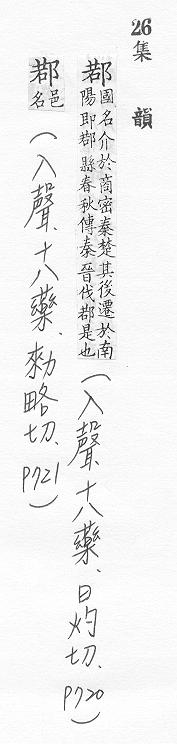 26 集韻
鄀國名介於商密秦楚其後遷於南陽即鄀縣春秋傳秦晉伐鄀是也(入聲、十八藥、日灼切、P720)
鄀邑名(入聲、十八藥、勑略切、P721)